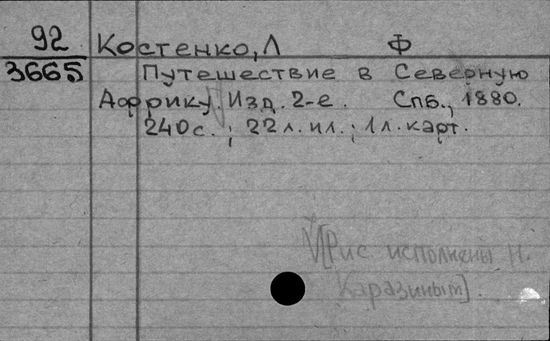 92
3665
Костенко, Л Ф
Путешествие в Северную
Африку. Изд. 2-е. Спб., 1880.
240 с.; 22 л. ил.; 1 л. карт.
[Рис исполнены Н.
Каразиным].